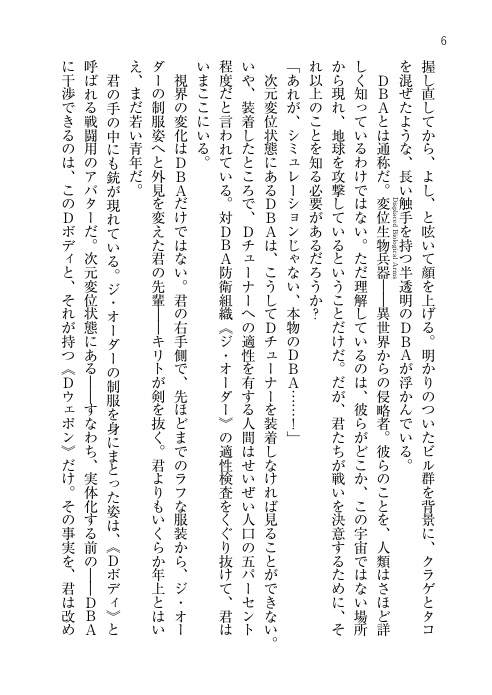 6
握し直してから、よし、と呟いて顔を上げる。明かりのついたビル群を背景に、クラゲとタコ
を混ぜたような、長い触手を持つ半透明のDBAが浮かんでいる。
DBAとは通称だ。変位生物兵器――異世界からの侵略者。彼らのことを、人類はさほど詳
Displaced Biological Arms
しく知っているわけではない。ただ理解しているのは、彼らがどこか、この宇宙ではない場所
から現れ、地球を攻撃しているということだけだ。だが、君たちが戦いを決意するために、そ
れ以上のことを知る必要があるだろうか?
「あれが、シミュレーションじゃない、本物のDBA……!」
次元変位状態にあるDBAは、こうしてDチューナーを装着しなければ見ることができない。
いや、装着したところで、Dチューナーへの適性を有する人間はせいぜい人口の五パーセント
程度だと言われている。対DBA防衛組織《ジ・オーダー》の適性検査をくぐり抜けて、君は
いまここにいる。
視界の変化はDBAだけではない。君の右手側で、先ほどまでのラフな服装から、ジ・オー
ダーの制服姿へと外見を変えた君の先輩――キリトが剣を抜く。君よりもいくらか年上とはい
え、まだ若い青年だ。
君の手の中にも銃が現れている。ジ・オーダーの制服を身にまとった姿は、《Dボディ》と
呼ばれる戦闘用のアバターだ。次元変位状態にある――すなわち、実体化する前の――DBA
に干渉できるのは、このDボディと、それが持つ《Dウェポン》だけ。その事実を、君は改め